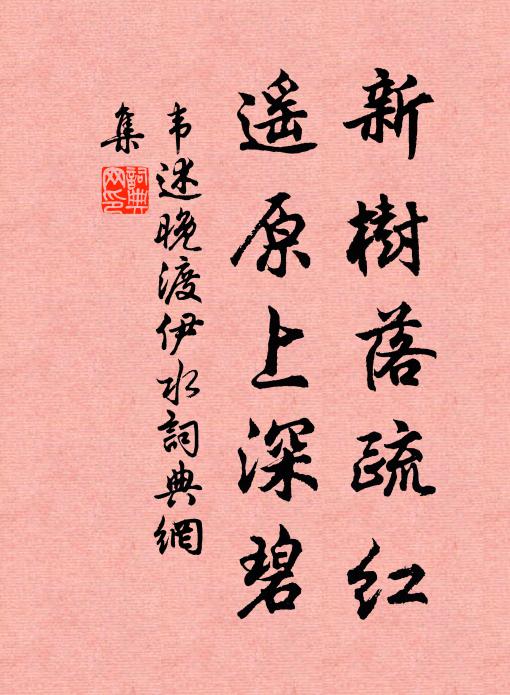 新樹落疏红
遥原上深碧
韦述晚渡伊水詞典網
集
詞典
网印